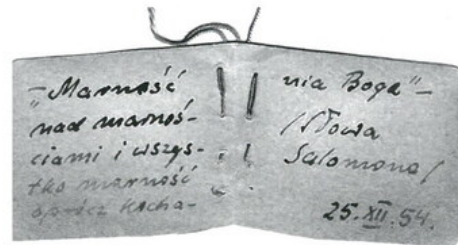 – „Marność
nad marnoś-
ciami i wszys-
tko marność
oprócz kocha-
nia Boga" –
/Słowa
Salomona/
25.XII.54.